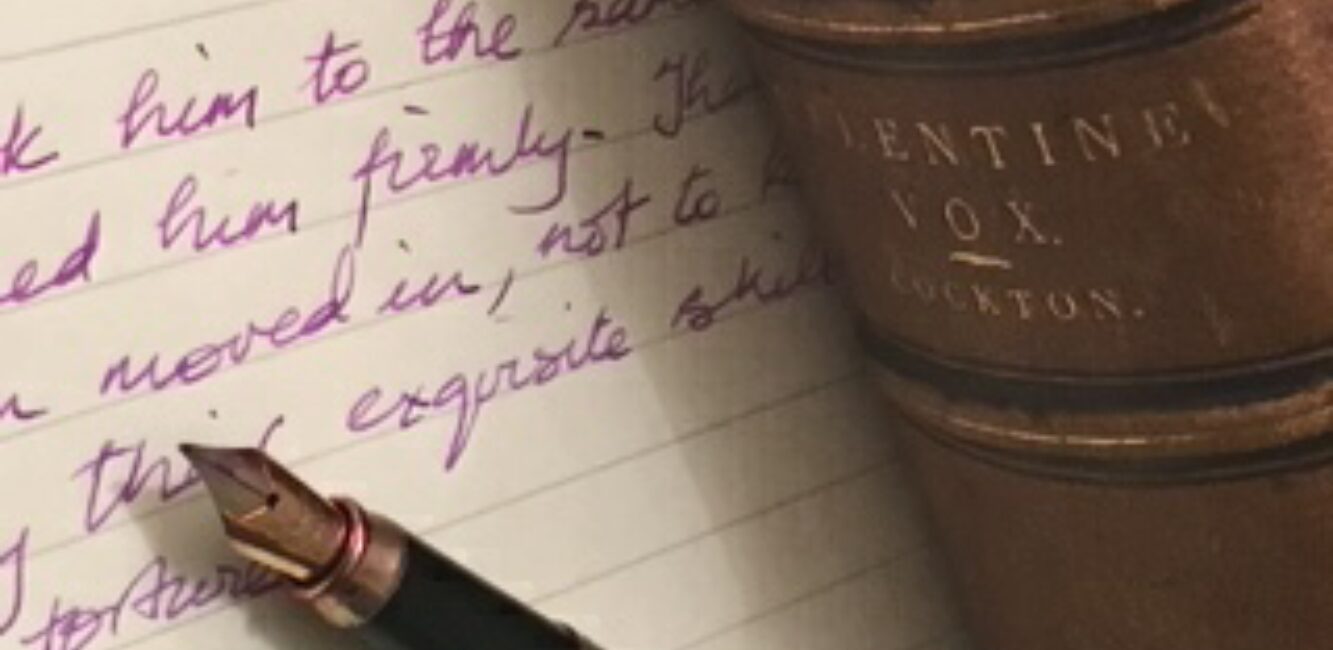 him to the
him firmly. The
moved in, not to
exquisite skill
torture
LENTINE
VOX.
OCKTON.